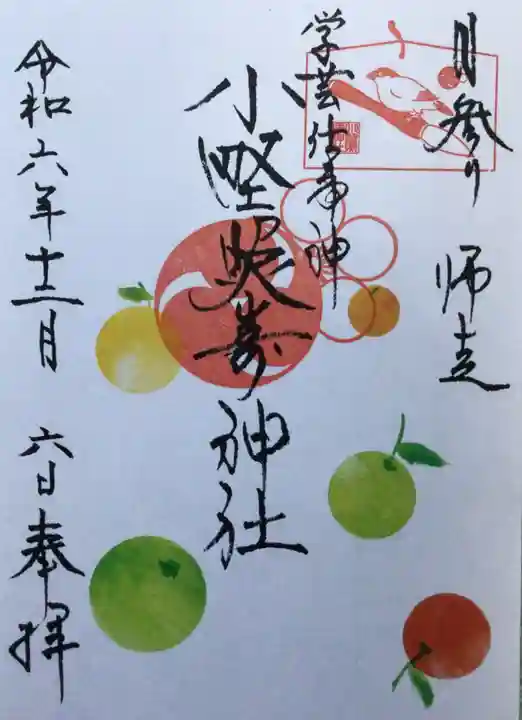 月参り 師走
学芸仕事神
小野照崎神社
令和六年十二月 六日 奉拝